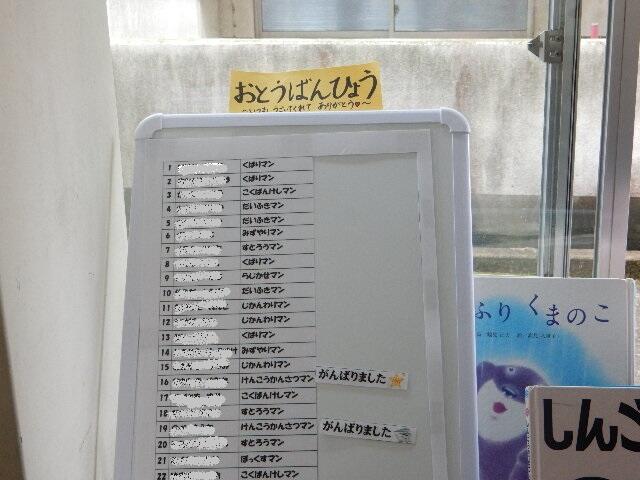 おとうばんひょう
ありがとう♡～
1 くばりマン
2 くばりマン
3 こくばんけしマン
4 だいふきマン
5 だいふきマン
6 みずやりマン
7 すとろうマン
8 くばりマン
9 らじかせマン
10 だいふきマン
11 じかんわりマン
12 じかんわりマン
13 くばりマン
14 みずやりマン
15 じかんわりマン
16 けんこうかんさつマン がんばりました
17 こくばんけしマン
18 すとろうマン
19 けんこうかんさつマン がんばりました
20 すとろうマン
21 ぼっくすマン
22 こくばんけしマン
ふり くまのこ
しんご